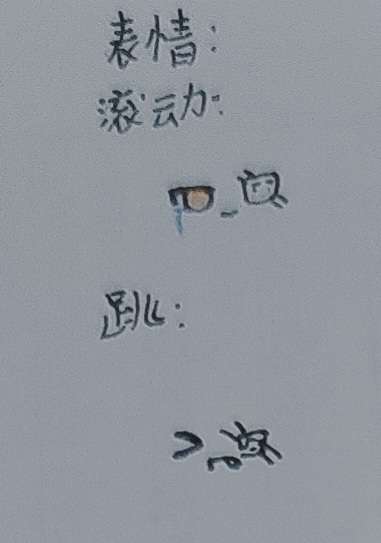 表情：
滚动：
跳：